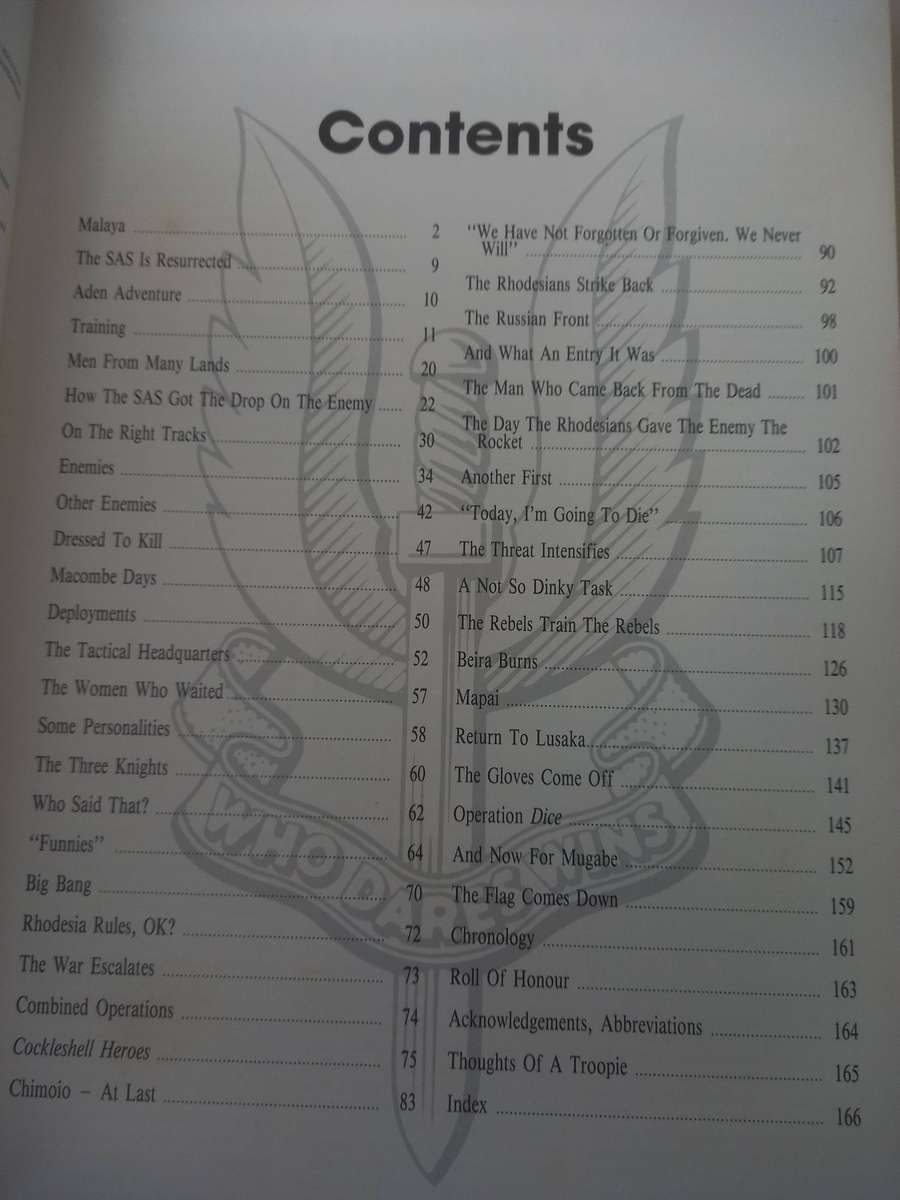 Contents
Malaya 2
The SAS Is Resurrected 9
Aden Adventure 10
Training 11
Men From Many Lands 20
How The SAS Got The Drop On The Enemy 22
On The Right Tracks 30
Enemies 34
Other Enemies 42
Dressed To Kill 47
Macombe Days 48
Deployments 50
The Tactical Headquarters 52
The Women Who Waited 57
Some Personalities 58
The Three Knights 60
Who Said That? 62
“Funnies” 64
Big Bang 70
Rhodesia Rules, OK? 72
The War Escalates 73
Combined Operations 74
Cockleshell Heroes 75
Chimoio – At Last 83
“We Have Not Forgotten Or Forgiven. We Never
Will” 90
The Rhodesians Strike Back 92
The Russian Front 98
And What An Entry It Was 100
The Man Who Came Back From The Dead 101
The Day The Rhodesians Gave The Enemy The
Rocket 102
Another First 105
“Today, I’m Going To Die” 106
The Threat Intensifies 107
A Not So Dinky Task 115
The Rebels Train The Rebels 118
Beira Burns 126
Mapai 130
Return To Lusaka 137
The Gloves Come Off 141
Operation Dice 145
And Now For Mugabe 152
The Flag Comes Down 159
Chronology 161
Roll Of Honour 163
Acknowledgements, Abbreviations 164
Thoughts Of A Troopie 165
Index 166
WHO DARES WINS